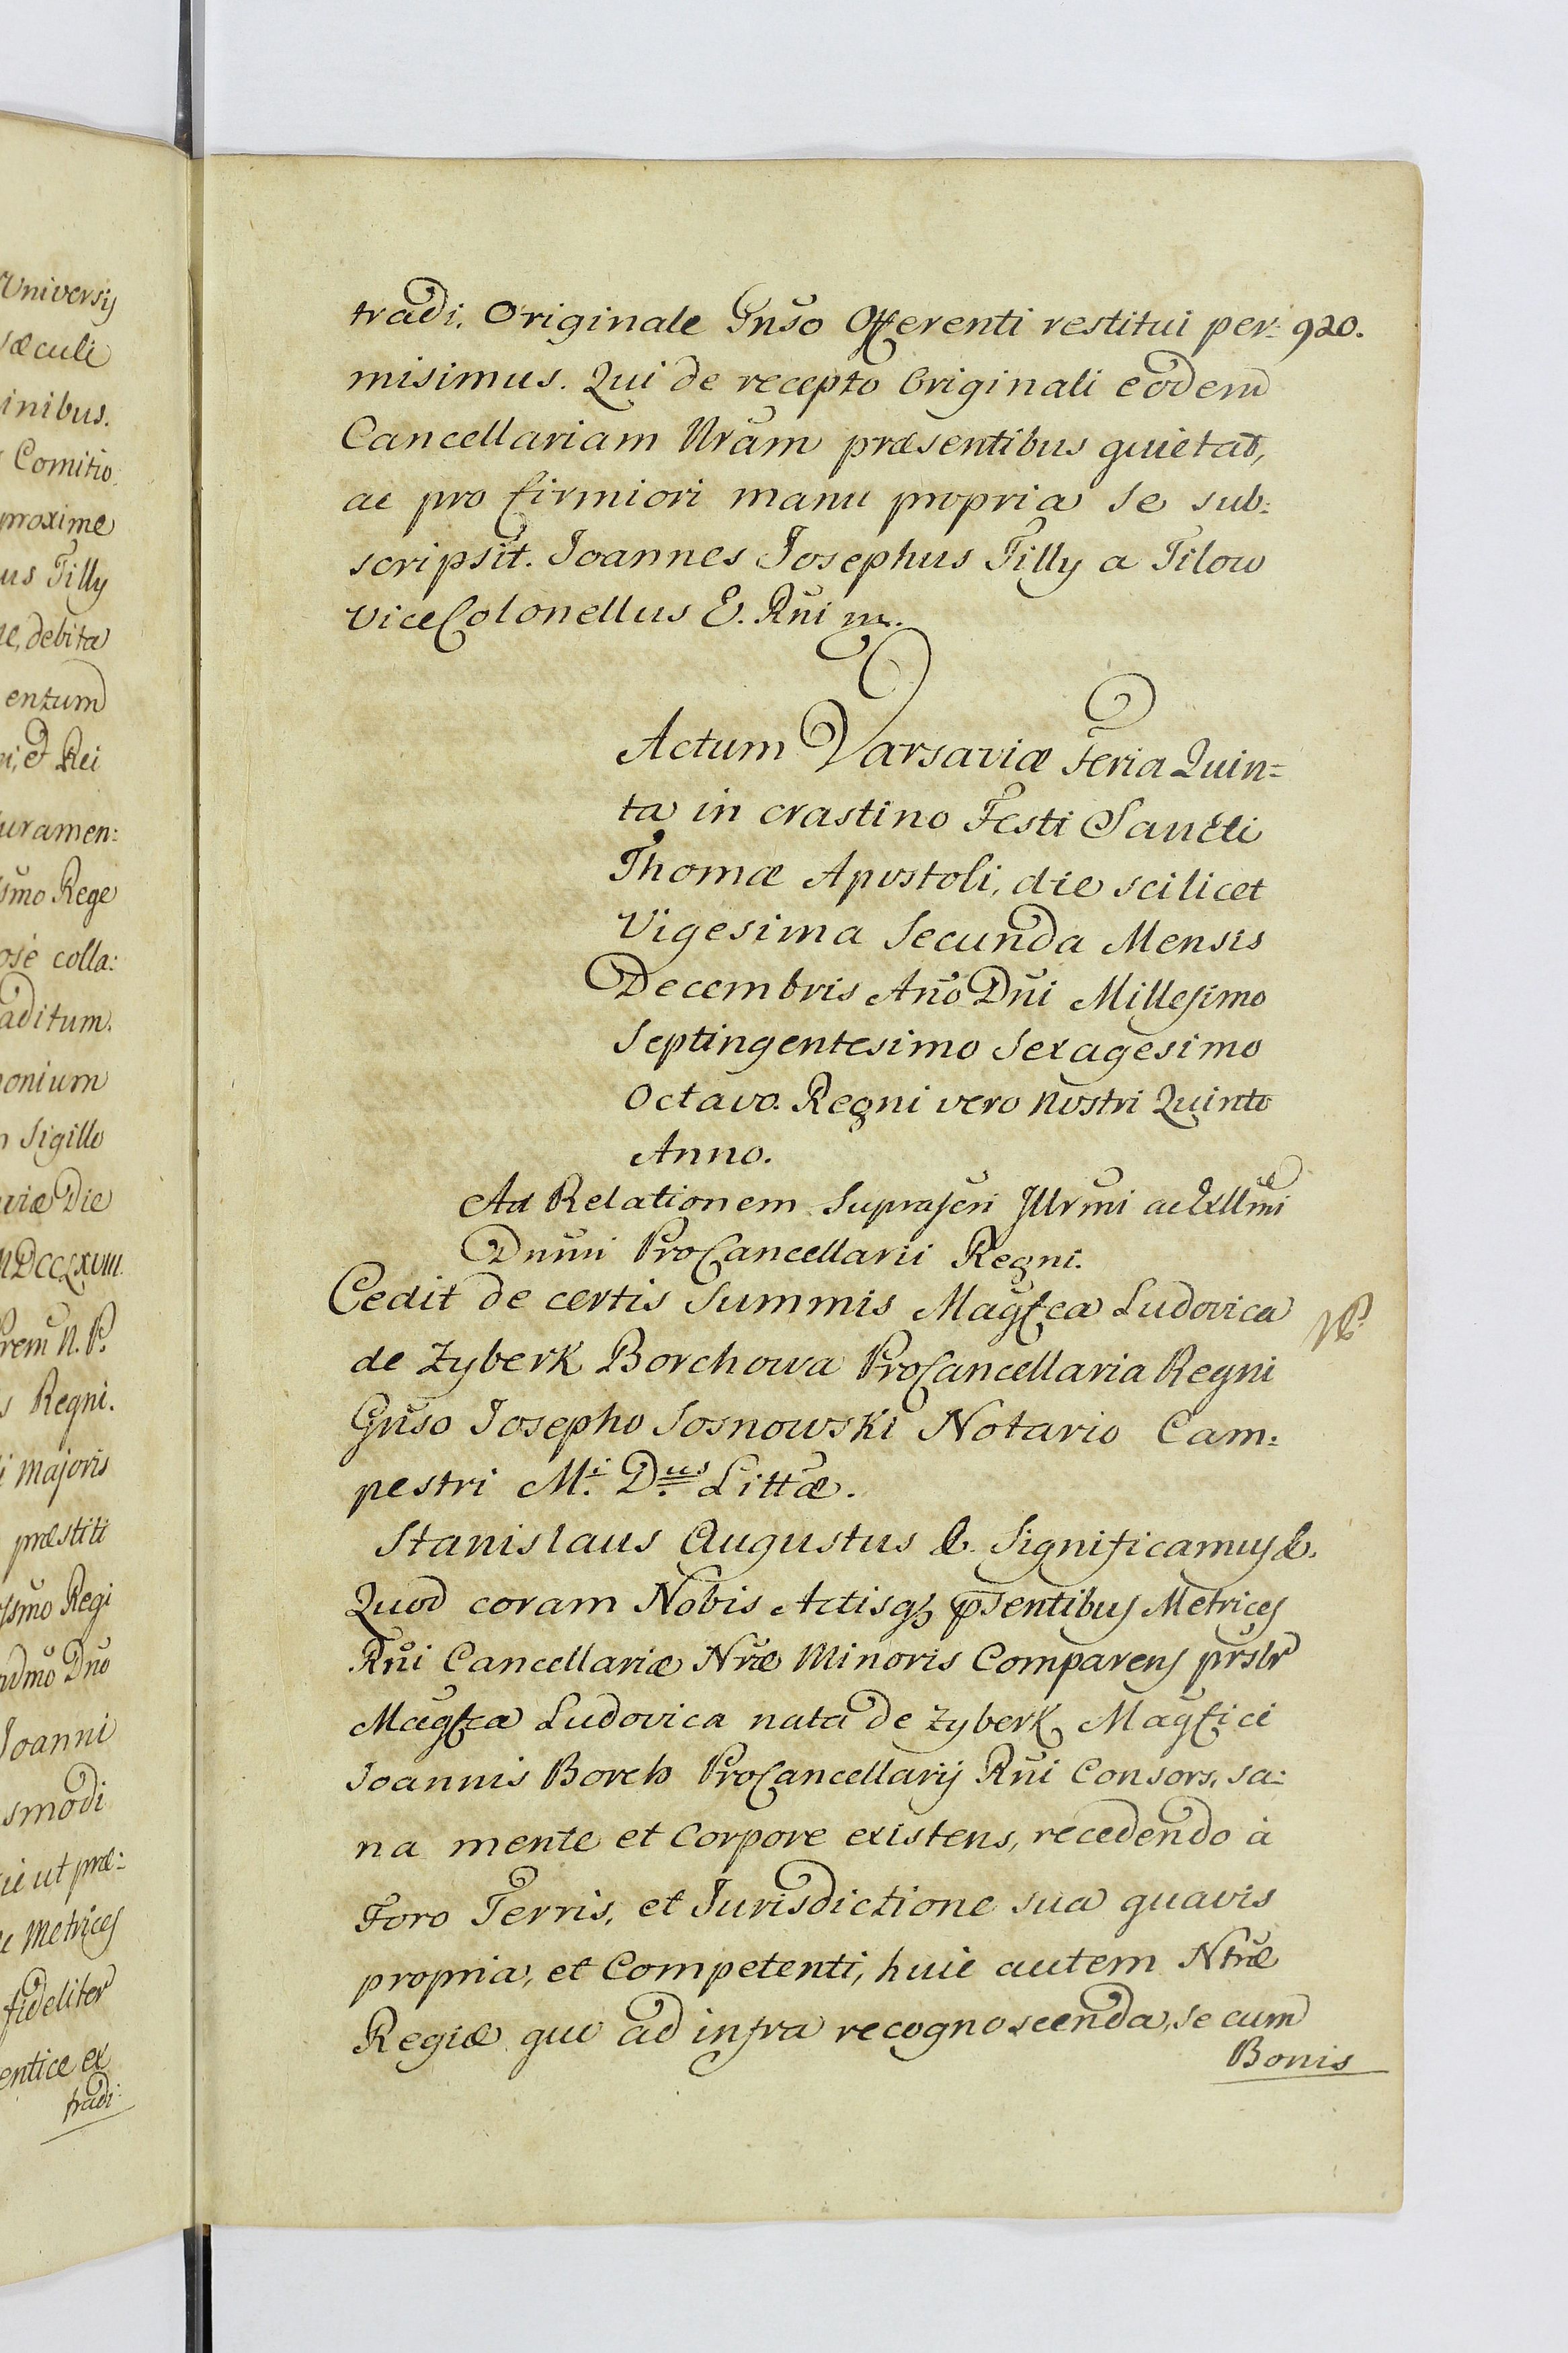 Universis
sæculi
inibus.
Comitio
proxime
us Tilly
ne, debita
entum
ni, et Rei
uramen:
smo Rege
ose colla:
aditum.
onium
n Sigillo
viæ Die
MDCCLXVIII.
rem N. P.
s Regni.
i majoris
præstiti
ssmo Regi
ndmo Dno
Joanni
smodi
ie ut præ:
e Metrices
fideliter
entice ex
tradi.
tradi. Originale Gnso Offerenti restitui per: 920.
misimus. Qui de recepto Originali eodem
Cancellariam Nram præsentibus quietat,
ac pro firmiori manu propria se sub:
scripsit. Joannes Josephus Tilly a Tilow
ViceColonellus E. Rni m.
Actum Varsaviæ Feria Quin=
ta in crastino Festi Sancti
Thomæ Apostoli, die scilicet
Vigesima Secunda Mensis
Decembris Año Dñi Millesimo
Septingentesimo Sexagesimo
Octavo. Regni vero nostri Quinto
Anno.
Ad Relationem Suprascri Jllrmi ac Exllmi
Dnmi ProCancellarii Regni.
Cedit de certis Summis Magfca Ludovica
de Zyberk Borchowa ProCancellaria Regni
Gñso Josepho Sosnowski Notario Cam:
pestri M.i D.us Littæ.
Stanislaus Augustus &. Significamus &.
Quod coram Nobis Actisq; pñsentibus Metrices
Rñi Cancellariæ Nræ Minoris Comparens prslr
Magfca Ludovica nata de Zyberk Magfici
Joannis Borch ProCancellarij Rñi Consors, sa:
na mente et Corpore existens, recedendo à
Foro Terris, et Jurisdictione sua quavis
propria, et Competenti, huic autem Ntræ
Regiæ quo ad infra recognoscenda, se cum
Bonis